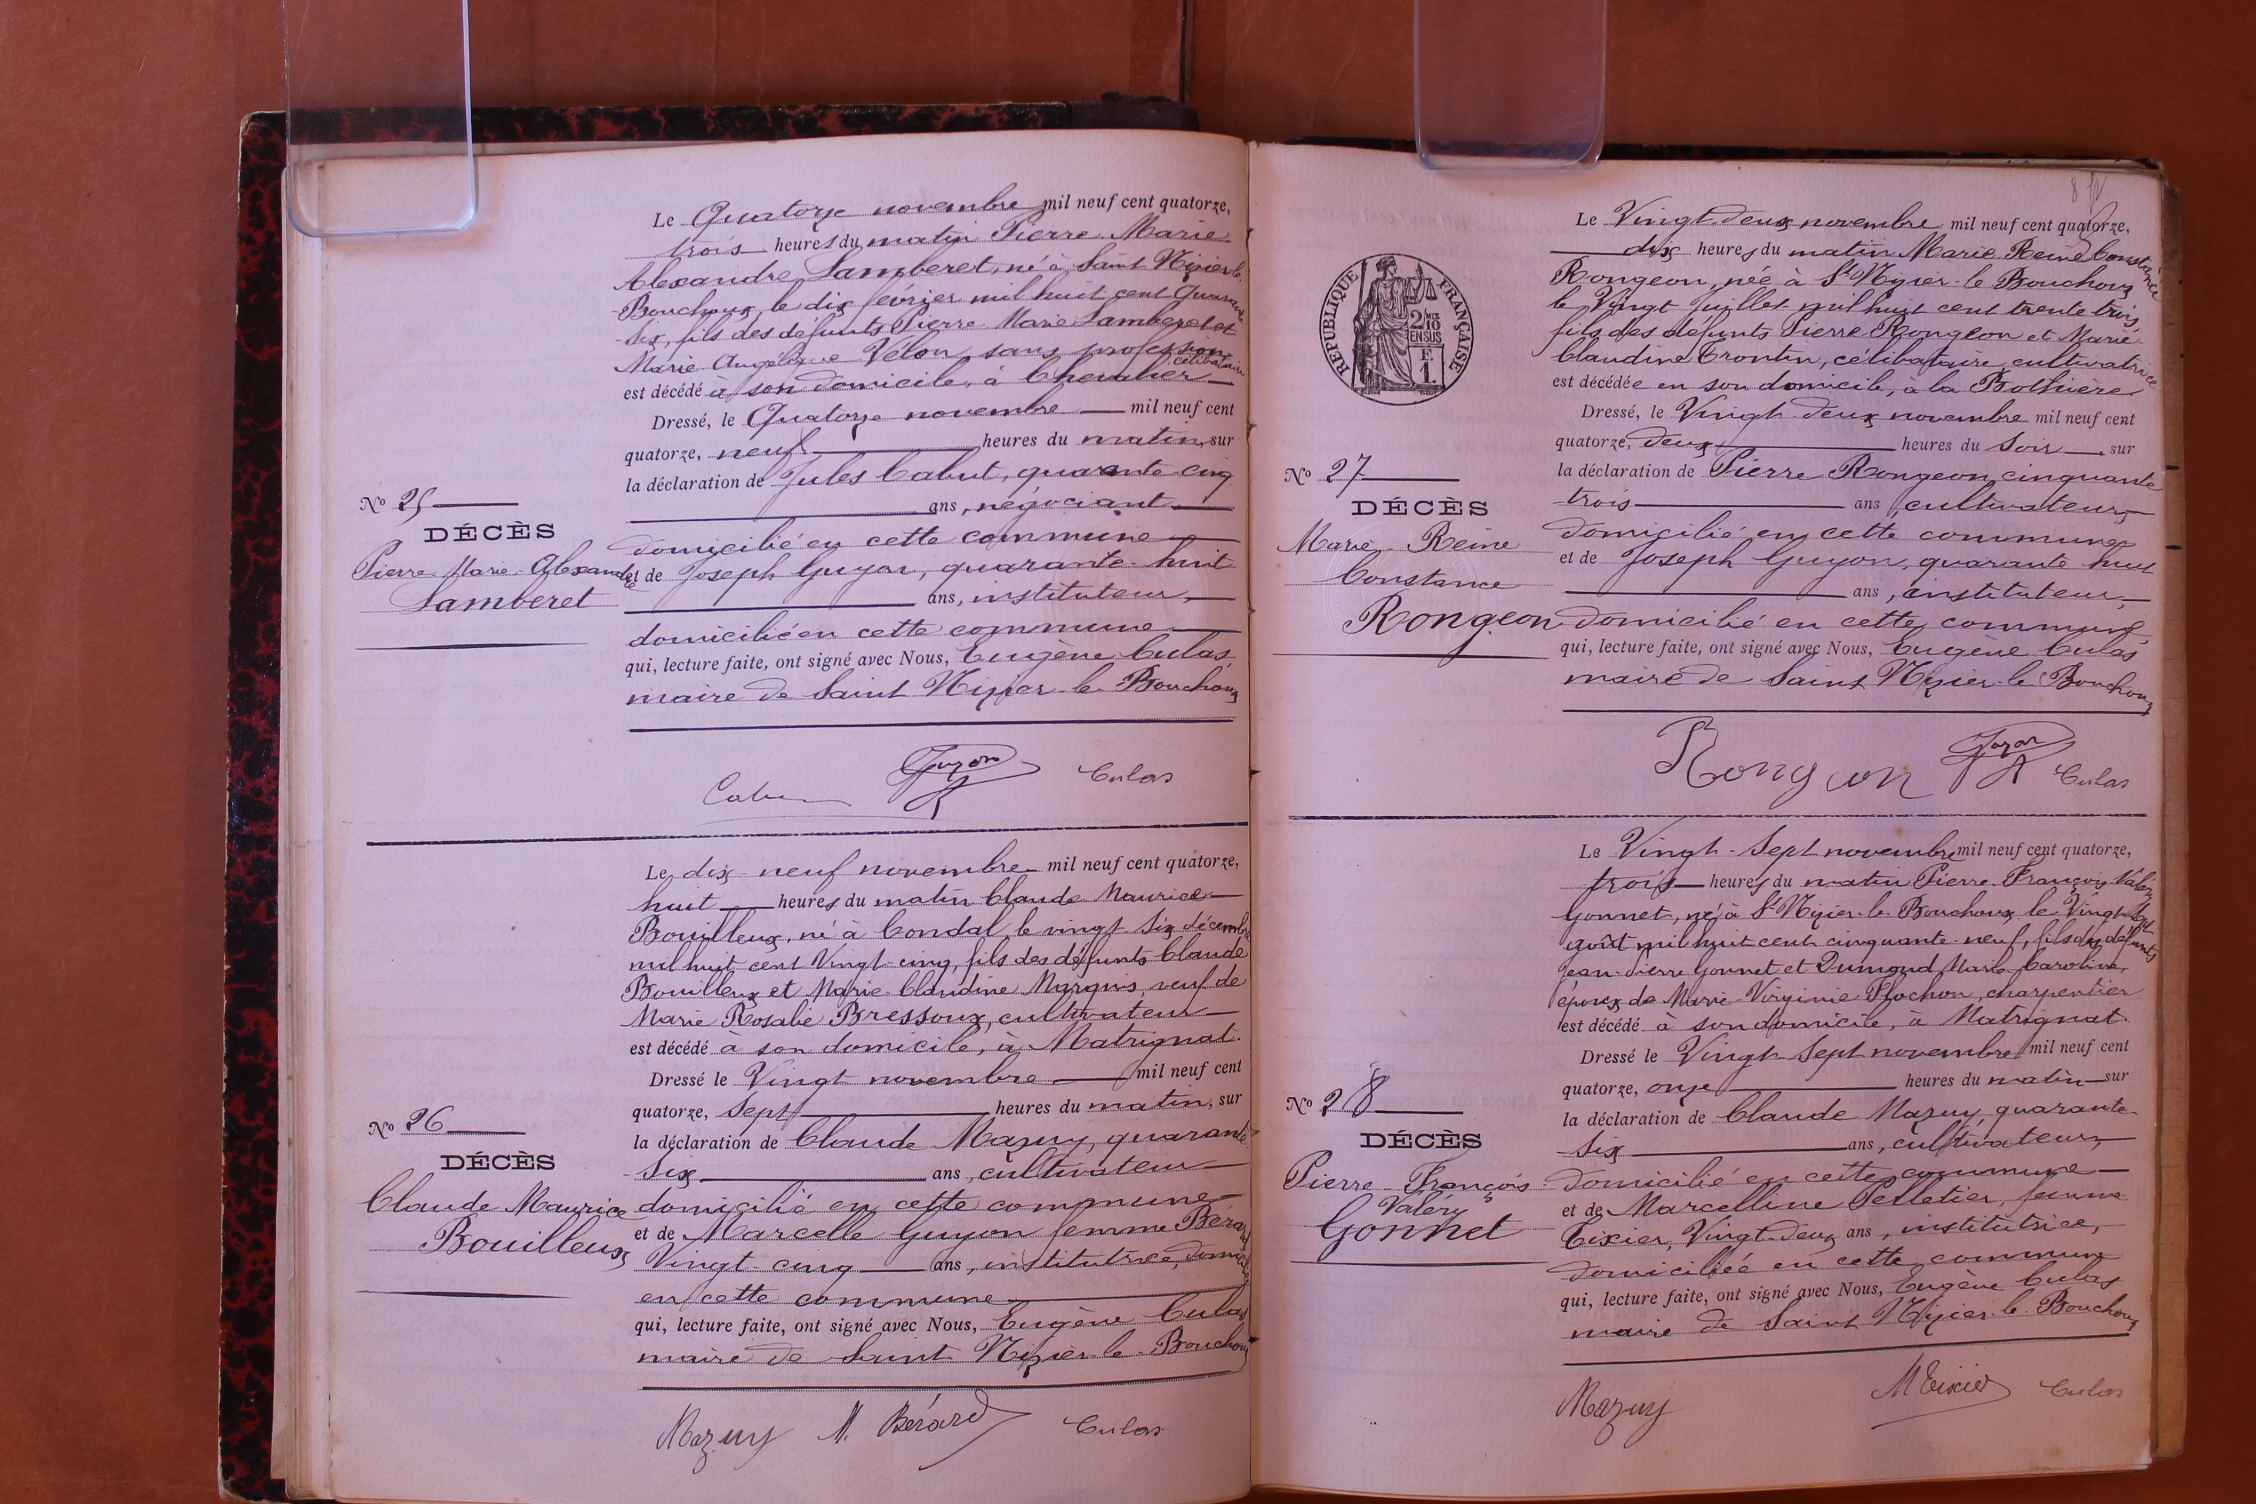 Le Quatorze novembre mil neuf cent quatorze,
trois heures du matin Pierre Marie
Alexandre Lamberet, né à Saint Nizier-le-
Bouchoux, le dix février mil huit cent quarante
six, fils des défunts Pierre Marie Lamberet et
Marie Angélique Vélon, sans profession
célibataire
est décédé à son domicile, à Chevalier
Dressé, le Quatorze novembre mil neuf cent
quatorze, neuf heures du matin, sur
la déclaration de Jules Cabut, quarante cinq
ans, négociant
domicilié en cette commune
et de Joseph Guyon, quarante-huit
ans, instituteur,
domicilié en cette commune
qui, lecture faite, ont signé avec Nous, Eugène Culas,
maire de Saint Nizier-le-Bouchoux
No 25
DÉCÈS
Pierre Marie Alexandre
Lamberet
Guyon Culas
Le dix-neuf novembre mil neuf cent quatorze,
huit heures du matin Claude Maurice
Bouilloux, né à Condal, le vingt-six décembre
mil huit cent vingt-cinq, fils des défunts Claude
Bouilloux et Marie Claudine Marquis, veuf de
Marie Rosalie Bressoux, cultivateur
est décédé à son domicile, à Matrignat.
Dressé le Vingt novembre mil neuf cent
quatorze, sept heures du matin, sur
la déclaration de Claude Mazuy, quarante
six ans, cultivateur
domicilié en cette commune
et de Marcelle Guyon femme Bérard
Vingt-cinq ans, institutrice, domiciliée
en cette commune
qui, lecture faite, ont signé avec Nous, Eugène Culas
maire de Saint Nizier-le-Bouchoux
No 26
DÉCÈS
Claude Maurice
Bouilloux
Mazuy M. Bérard Culas
Le Vingt-deux novembre mil neuf cent quatorze,
dix heures du matin Marie Reine Constance
Rongeon, née à St Nizier-le-Bouchoux
le vingt juillet mil huit cent trente trois,
fils des défunts Pierre Rongeon et Marie
Claudine Trontin, célibataire, cultivatrice
est décédée en son domicile, à la Bothière
Dressé, le Vingt-deux novembre mil neuf cent
quatorze, deux heures du soir, sur
la déclaration de Pierre Rongeon, cinquante
trois ans, cultivateur,
domicilié en cette commune
et de Joseph Guyon, quarante huit
ans, instituteur,
domicilié en cette commune,
qui, lecture faite, ont signé avec Nous, Eugène Culas
maire de Saint Nizier-le-Bouchoux
RÉPUBLIQUE FRANÇAISE
2/10
EN SUS
F.
1.
No 27
DÉCÈS
Marie Reine
Constance
Rongeon
Rongeon Guyon Culas
Le Vingt-Sept novembre mil neuf cent quatorze,
trois heures du matin Pierre François Valéry
Gonnet, né à St Nizier-le-Bouchoux le Vingt-
août mil huit cent cinquante-neuf, fils des défunts
Jean-Pierre Gonnet et Dumond Marie Caroline,
époux de Marie Virginie Plochon, charpentier
est décédé à son domicile, à Matrignat.
Dressé le Vingt-Sept novembre mil neuf cent
quatorze, onze heures du matin sur
la déclaration de Claude Mazuy, quarante-
six ans, cultivateur,
domicilié en cette commune
et de Marcelline Pelletier, femme
Tixier, Vingt-deux ans, institutrice,
domiciliée en cette commune
qui, lecture faite, ont signé avec Nous, Eugène Culas
maire de Saint Nizier-le-Bouchoux
No 28
DÉCÈS
Pierre-François-
Valéry
Gonnet
Mazuy M Tixier Culas